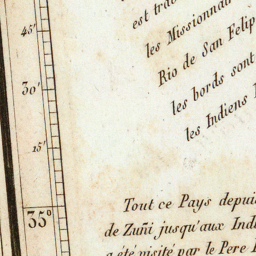 est trac
les Missionnai
Rio de San Felip
les bords sont
les Indiens
45'
30'
15'
35°
Tout ce Pays depui
de Zuñi jusqu'aux Ind
a été visité par le Pere